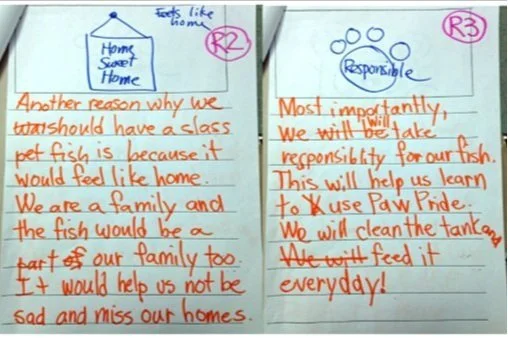 Feels like
home
R2
Home
Sweet
Home
Another reason why we
should have a class
pet fish is because it
would feel like home.
We are a family and
the fish would be a
part of our family too.
It would help us not be
sad and miss our homes.
R3
Responsible
Most importantly,
We will be will take
responsiblity for our fish.
This will help us learn
to use Paw Pride.
We will clean the tank and
We will feed it
everyday!